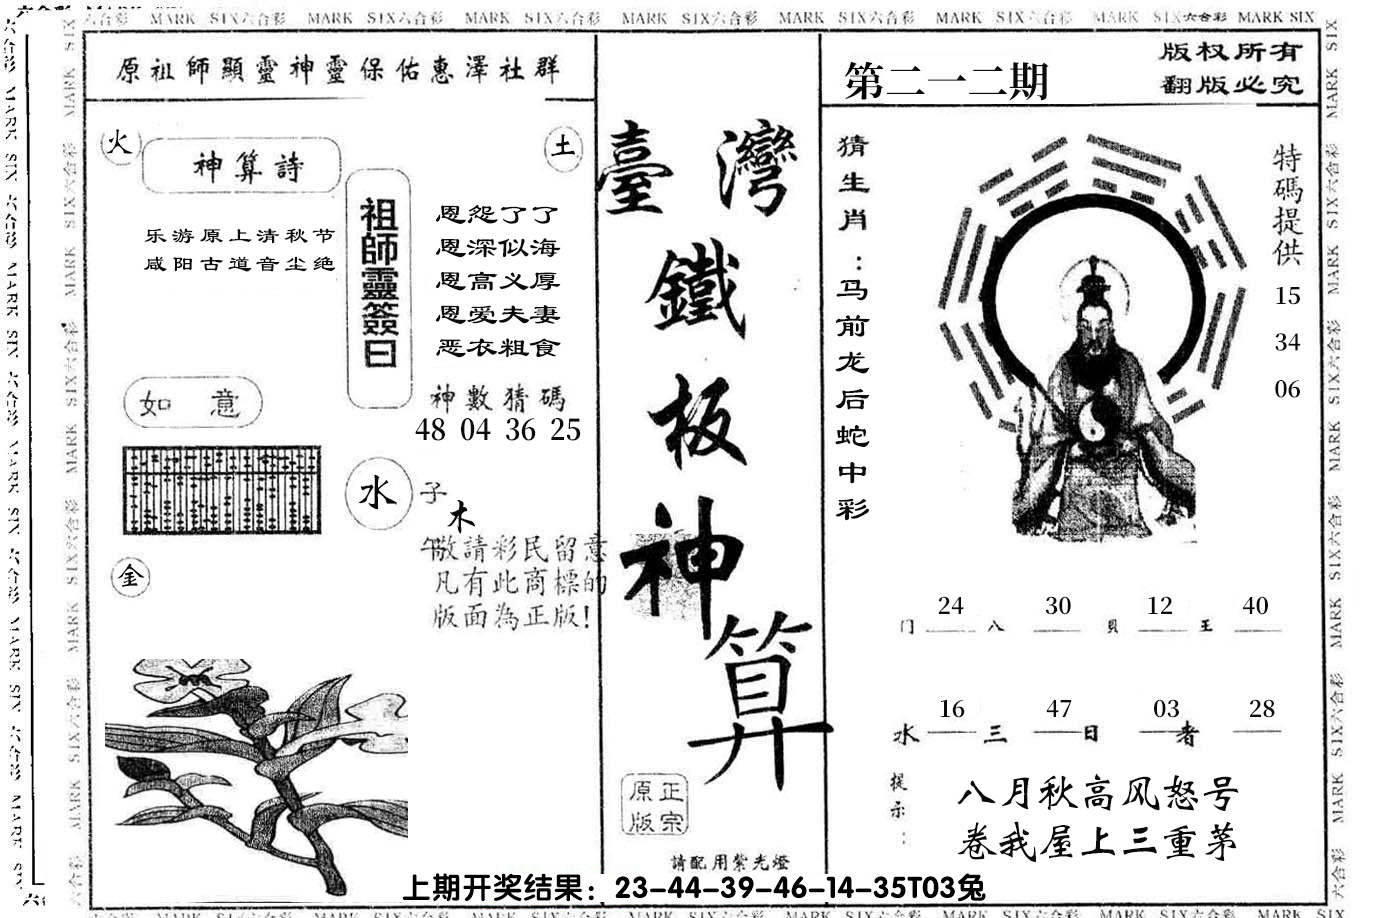 MARK SIX六合彩 MARK SIX六合彩 MARK SIX六合彩 MARK SIX六合彩 MARK SIX六合彩 MARK SIX六合彩 MARK SIX六合彩 MARK SIX
原祖師顯靈神靈保佑惠澤社群
火
神算詩
土
乐游原上清秋节
咸阳古道音尘绝
祖師靈簽曰
恩怨了了
恩深似海
恩高义厚
恩爱夫妻
恶衣粗食
神數猜碼
48 04 36 25
如 意
水
子
木
午
金
敬請彩民留意
凡有此商標的
版面為正版!
臺灣
鐵
板
神
算
正宗
原版
請配用紫光燈
第二一二期
版权所有
翻版必究
猜生肖:马前龙后蛇中彩
特碼提供
15
34
06
24 30 12 40
门 八 貝 王
16 47 03 28
水 三 日 者
提示:
八月秋高风怒号
卷我屋上三重茅
上期开奖结果：23-44-39-46-14-35T03兔